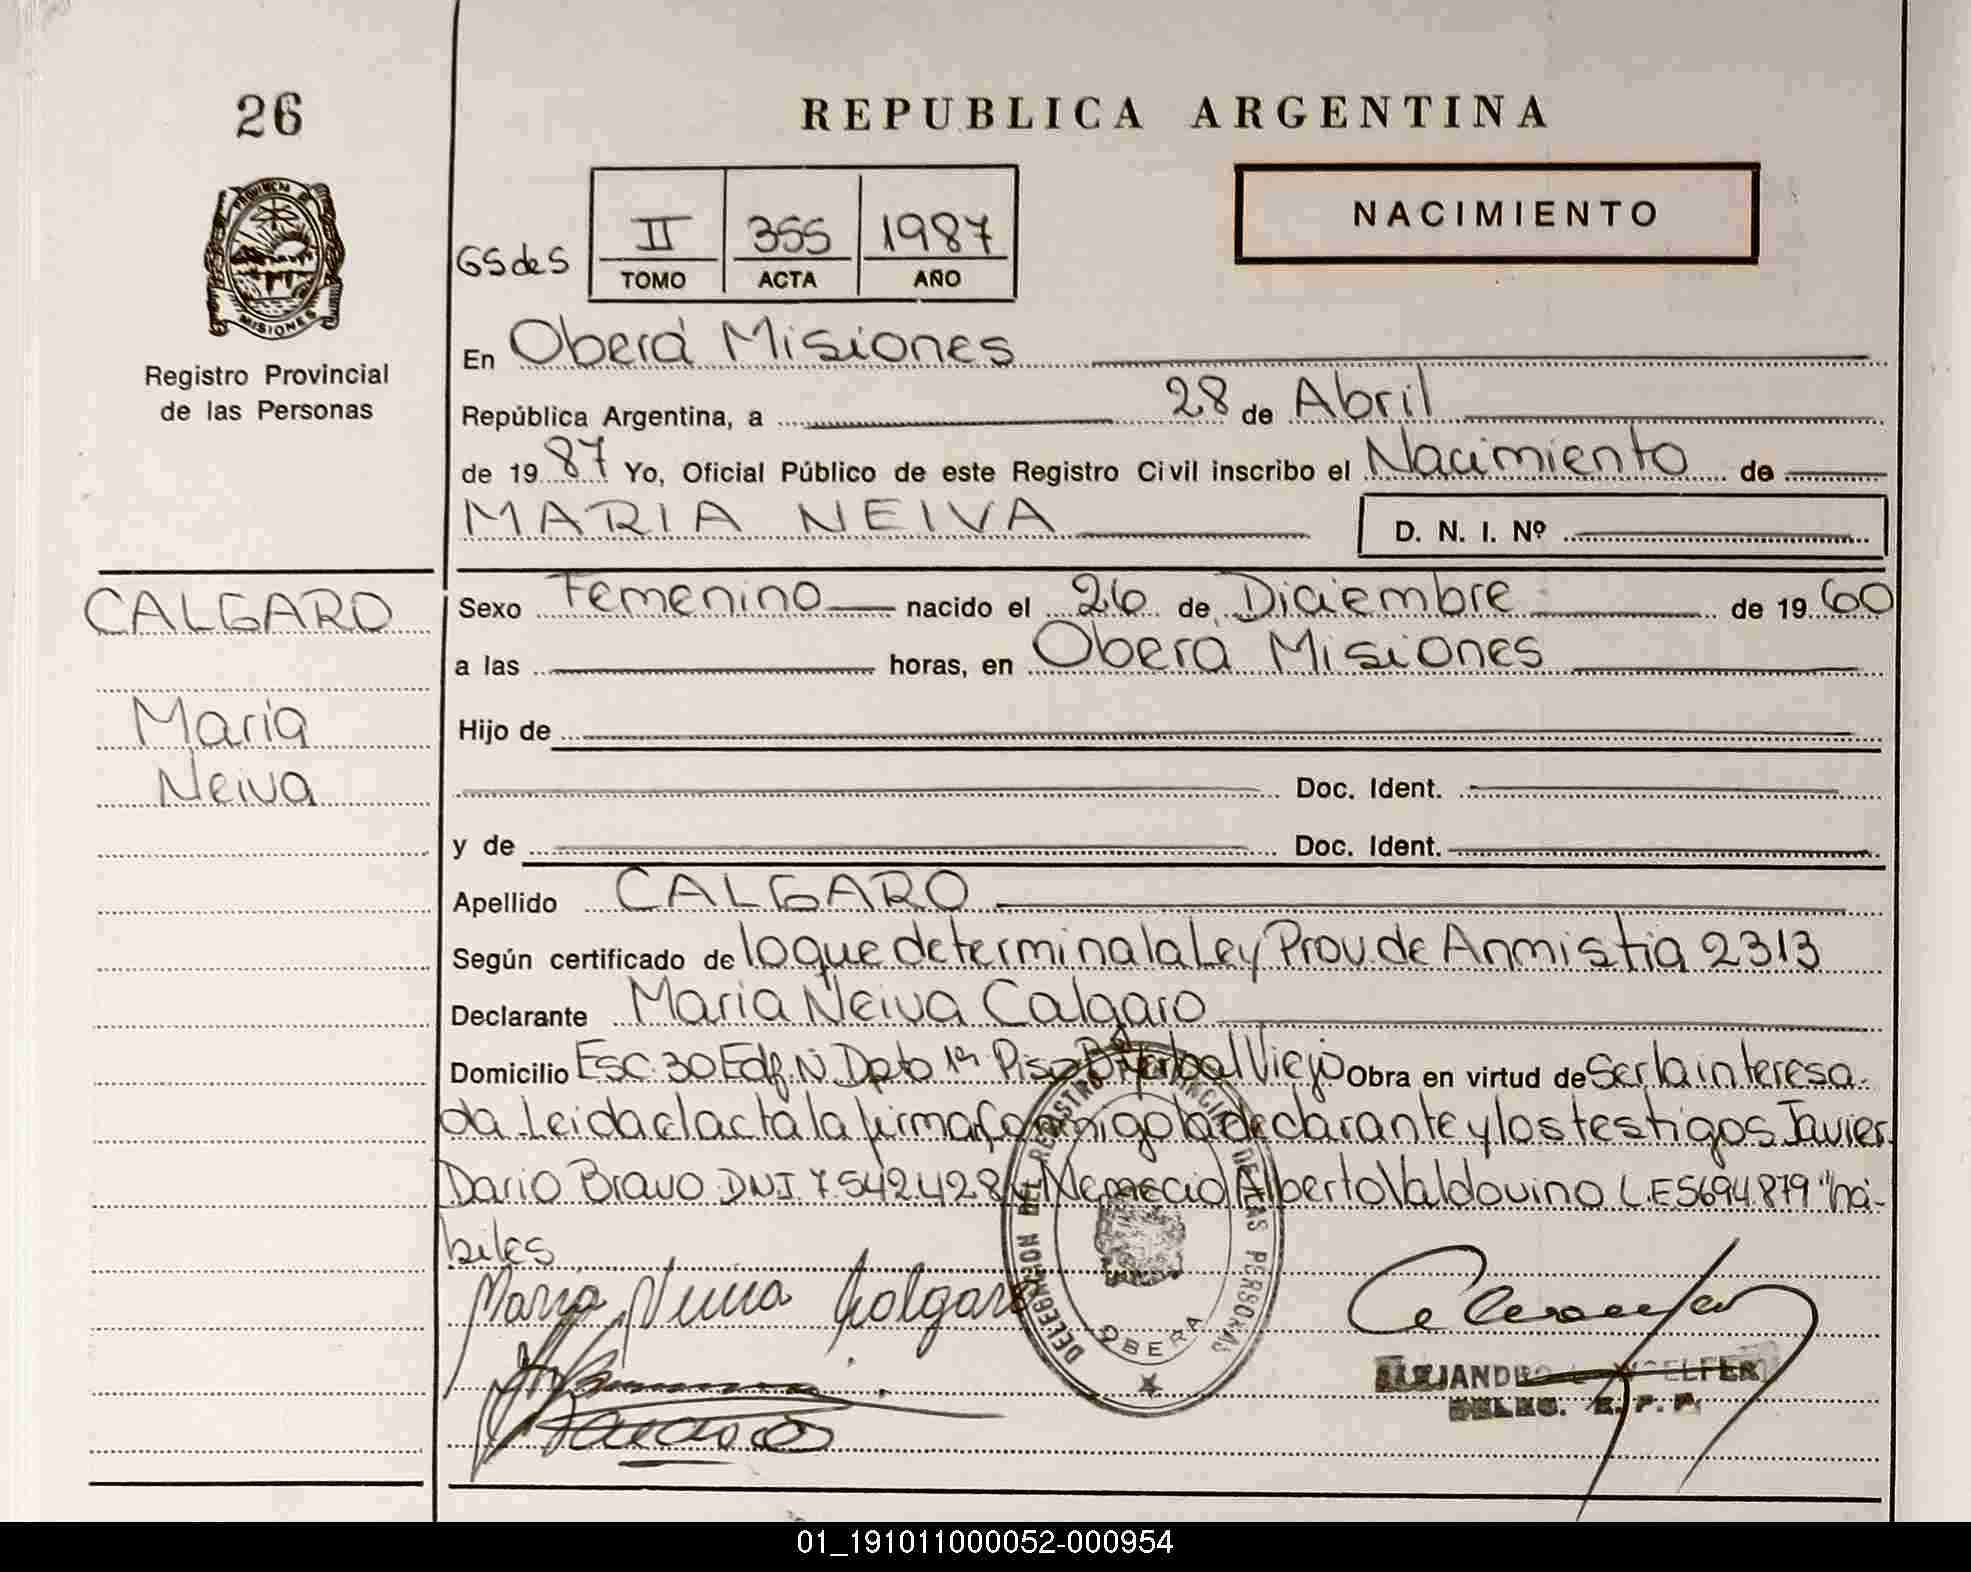 26
REPUBLICA ARGENTINA
NACIMIENTO
PROVINCIA DE
MISIONES
Registro Provincial
de las Personas
GSdeS
II 355 1987
TOMO ACTA AÑO
En Oberá Misiones
República Argentina, a 28 de Abril
de 19 87 Yo, Oficial Público de este Registro Civil inscribo el Nacimiento de
MARIA NEIVA D. N. I. Nº
CALGARO
Maria
Neiva
Sexo Femenino nacido el 26 de Diciembre de 19 60
a las horas, en Obera Misiones
Hijo de
Doc. Ident.
y de Doc. Ident.
Apellido CALGARO
Según certificado de lo que determina la Ley Prov. de Anmistia 2313
Declarante Maria Neiva Calgaro
Domicilio Esc. 30 Edf. N. Dpto 1º Piso Yerbal Viejo Obra en virtud de Ser la interesa-
da. Leida el acta la firma conmigo la declarante y los testigos Javier
Dario Bravo DNI 7542428 y Nemecio Alberto Valdovino L.E 5694.879 "há-
biles
Maria Neiva Calgaro
DELEGACION DEL REGISTRO PROVINCIAL DE LAS PERSONAS
OBERA
DELEG. R. P. P.
01_191011000052-000954